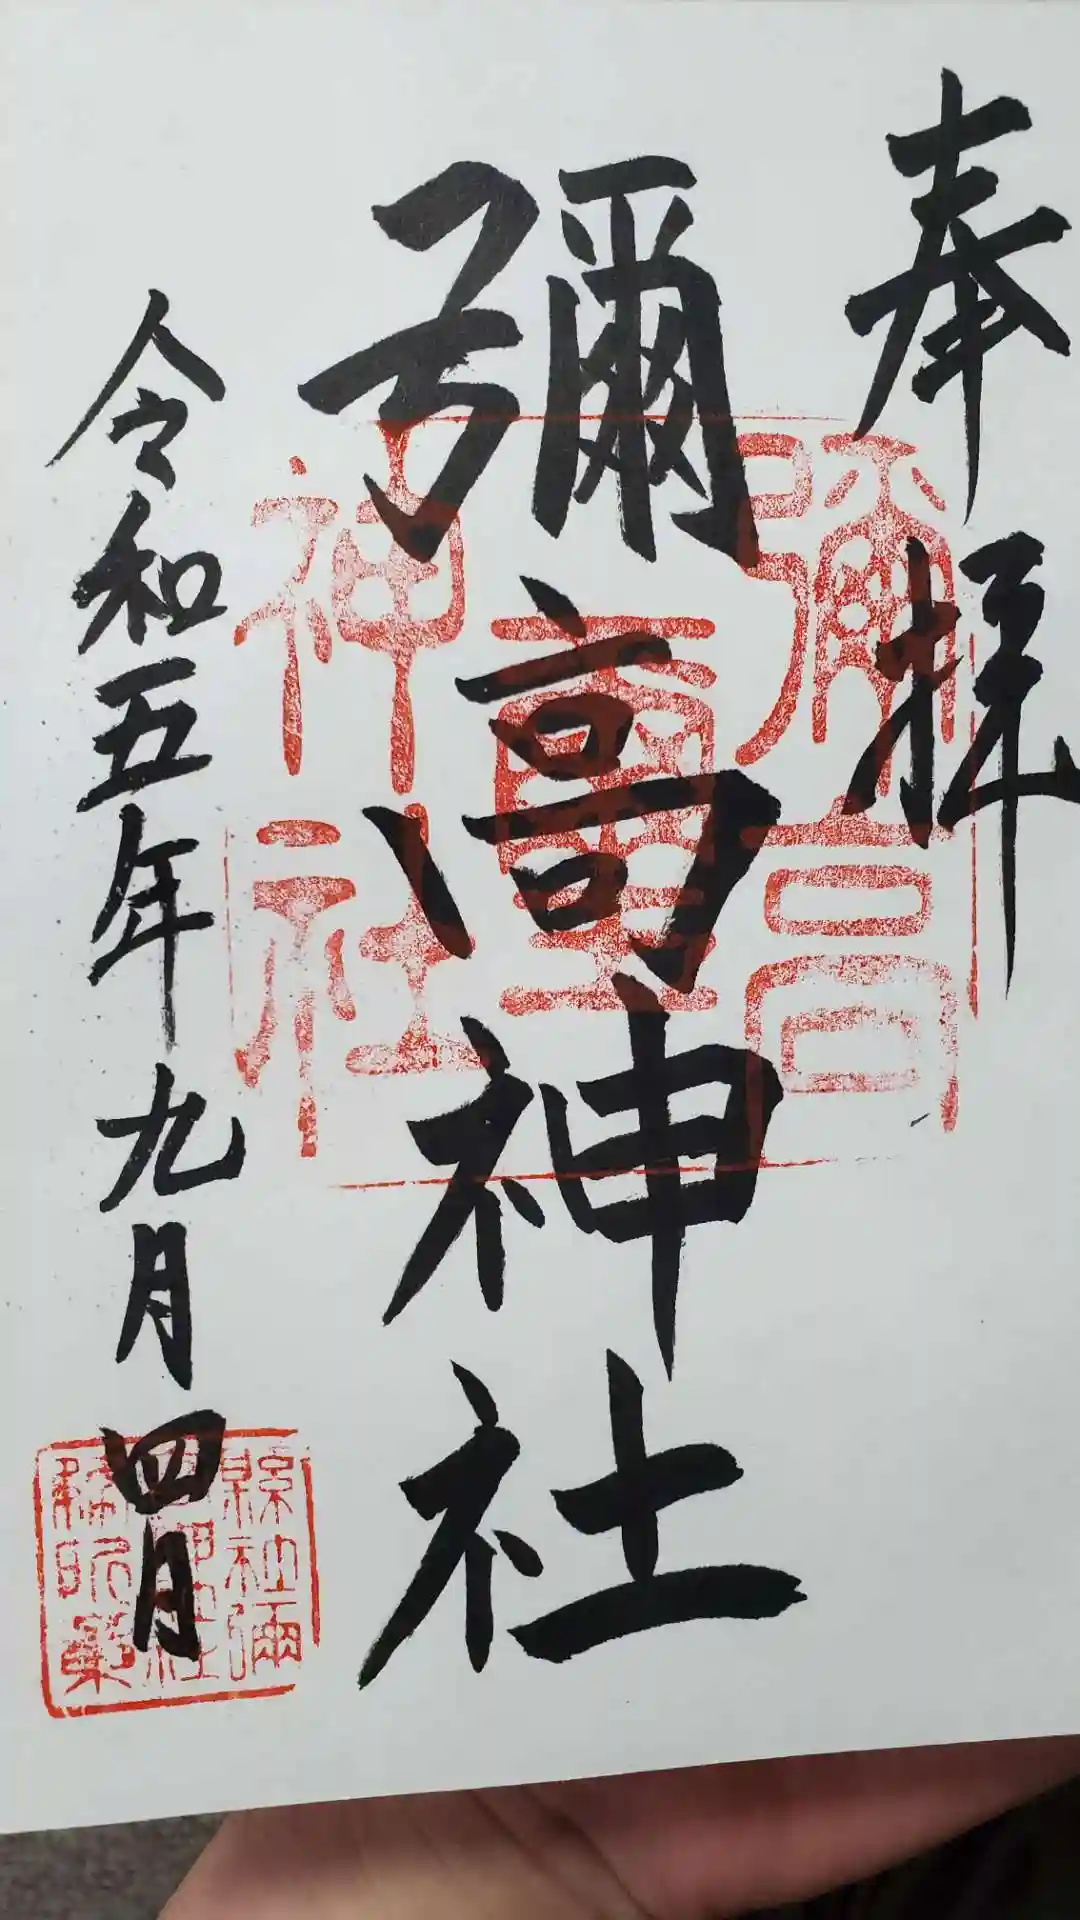 奉拝
彌高神社
彌高
神社
令和五年九月四月